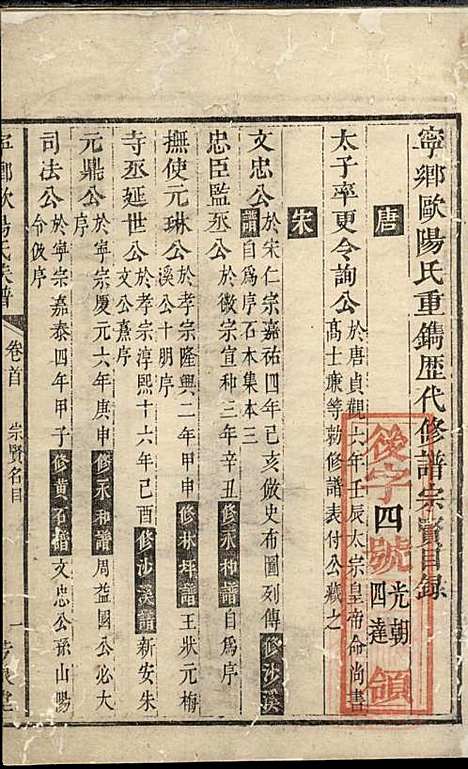 寧鄉歐陽氏重鐫歷代修譜宗賢目錄
唐
太子率更令詢公 於唐貞觀六年壬辰太宗皇帝命尚書
高士廉等勅修譜表付公藏之
宋
文忠公 於宋仁宗嘉祐四年己亥倣史布圖列傳修沙溪
譜自為序石木集本三
忠臣監丞公 於徽宗宣和三年辛丑修永和譜自為序
撫使元琳公 於孝宗隆興二年甲申修林坪譜王狀元梅
溪公十朋序
寺丞延世公 於孝宗淳熙十六年己酉修沙溪譜新安朱
文公熹序
元鼎公 於寧宗慶元六年庚申修永和譜周益國公必大
序
司法公 於寧宗嘉泰四年甲子修黃石譜文忠公孫山陽
令伋序
寧鄉歐陽氏族譜
卷首
崇賢名目
一
後字四號領
光朝
四達